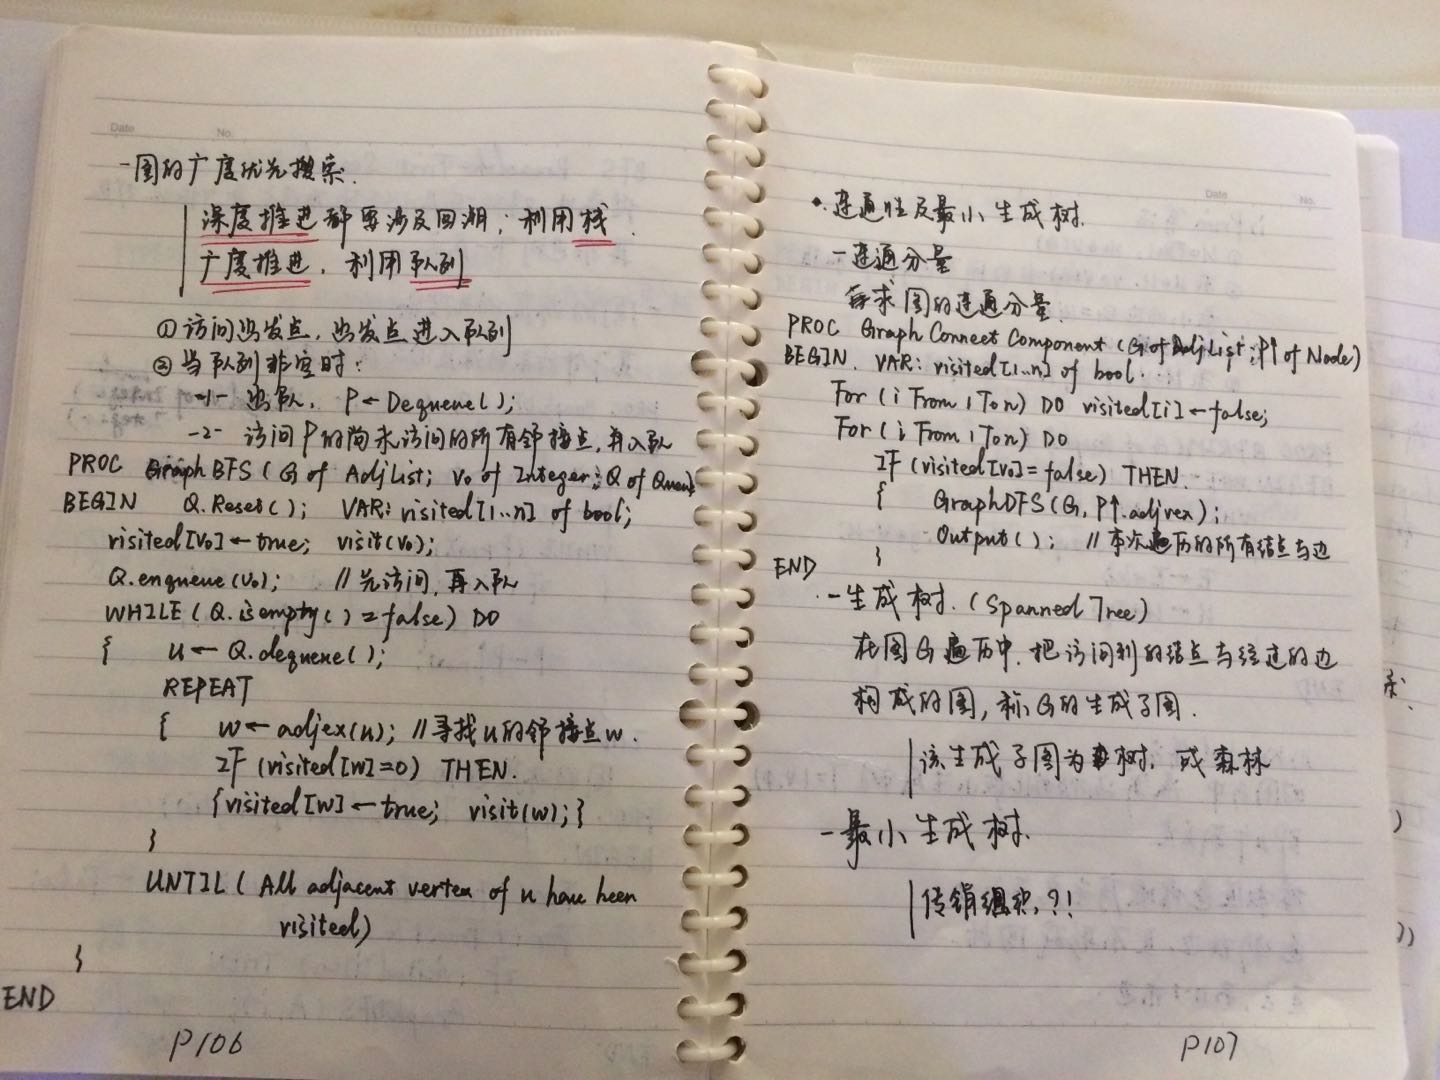 Date No.
-图的广度优先搜索.
深度推进都要涉及回溯，利用栈.
广度推进，利用队列
① 访问出发点，出发点进入队列
② 当队列非空时：
-1- 出队， P←Dequeue();
-2- 访问P的尚未访问的所有邻接点，再入队
PROC GraphBFS (G of AdjList; v0 of Integer; Q of Queue)
BEGIN Q.Reset(); VAR: visited[1..n] of bool;
visited[v0]←true; visit(v0);
Q.enqueue(v0); //先访问，再入队
WHILE (Q.isempty()=false) DO
{ u←Q.dequeue();
REPEAT
{ w←adjex(u); //寻找u的邻接点w.
IF (visited[w]=0) THEN.
{visited[w]←true; visit(w);}
}
UNTIL (All adjacent vertex of u have been
visited)
}
END
P106
Date No.
·连通性及最小生成树.
-连通分量
求图的连通分量.
PROC GraphConnectComponent (G of AdjList; P↑ of Node)
BEGIN. VAR: visited[1..n] of bool.
For (i From 1 To n) DO visited[i]←false;
For (i From 1 To n) DO
IF (visited[v0]=false) THEN.
{ GraphDFS(G, P↑.adjvex);
Output(); //本次遍历的所有结点与边
}
END
-生成树. (Spanned Tree)
在图G遍历中，把访问到的结点与经过的边
构成的图，称G的生成子图.
该生成子图为树，或森林
-最小生成树.
传销组织,?!
P107